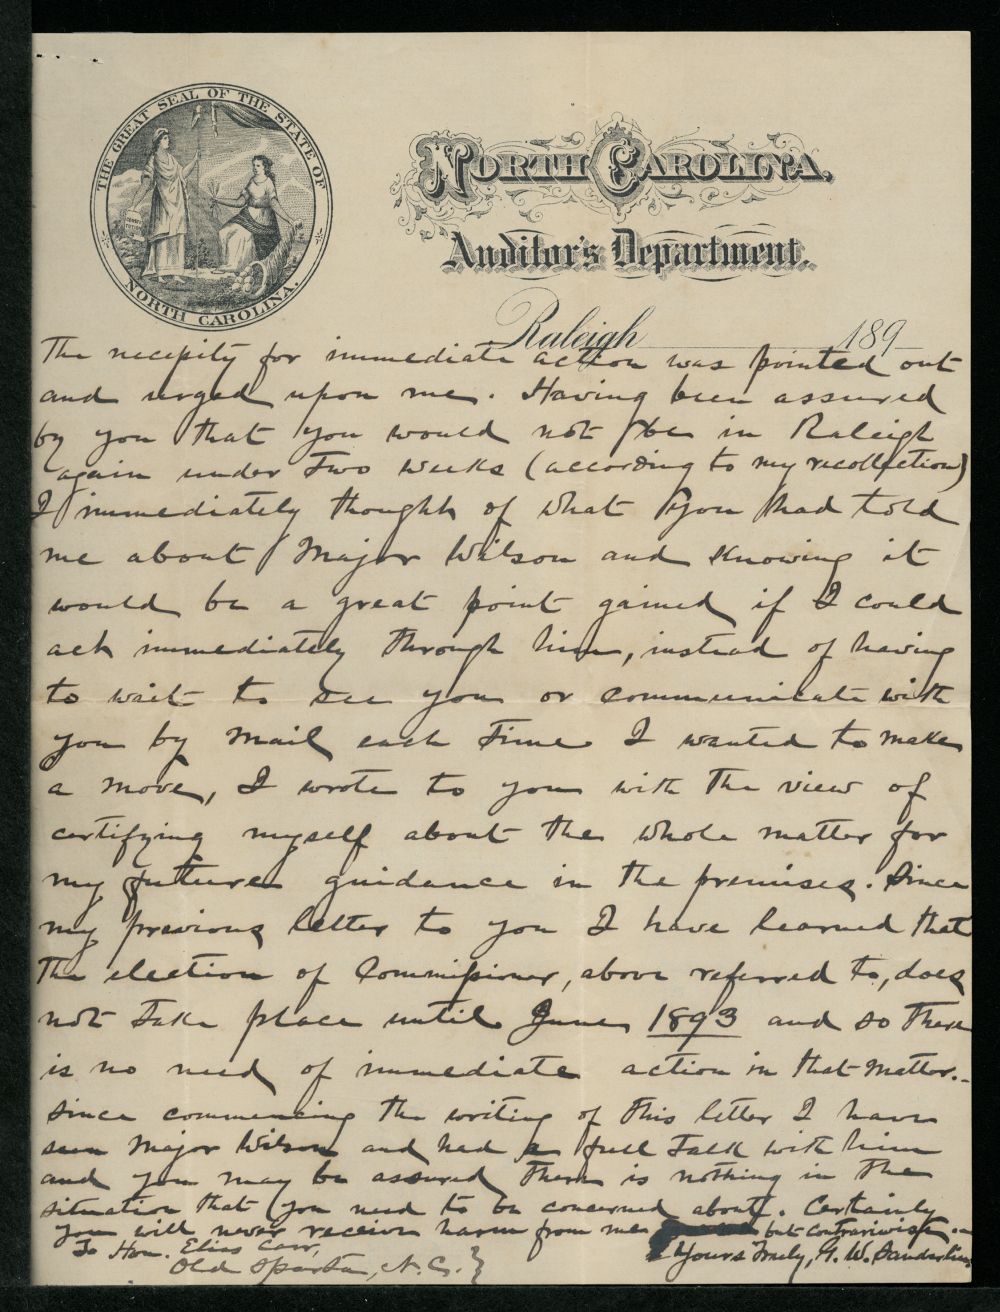 THE GREAT SEAL OF THE STATE OF
NORTH CAROLINA.
NORTH CAROLINA.
Auditor's Department.
Raleigh 189
The necessity for immediate action was pointed out
and urged upon me. Having been assured
by you that you would not be in Raleigh
again under Two weeks (according to my recollection)
I immediately thought of what you had told
me about Major Wilson and knowing it
would be a great point gained if I could
act immediately through him, instead of having
to wait to see you or communicate with
you by mail each Time I wanted to make
a move, I wrote to you with the view of
certifying myself about the whole matter for
my future guidance in the premises. Since
my previous letter to you I have learned that
the election of Commissioner, above referred to, does
not Take place until June 1893 and so there
is no need of immediate action in that matter.
Since commencing the writing of this letter I have
seen Major Wilson and had a full Talk with him
and you may be assured there is nothing in the
situation that you need to be concerned about. Certainly
you will never receive harm from me but contrariwise.
To Hon. Elias Carr,
Old Sparta, N.C.}
Yours Truly, G. W. Sanderlin